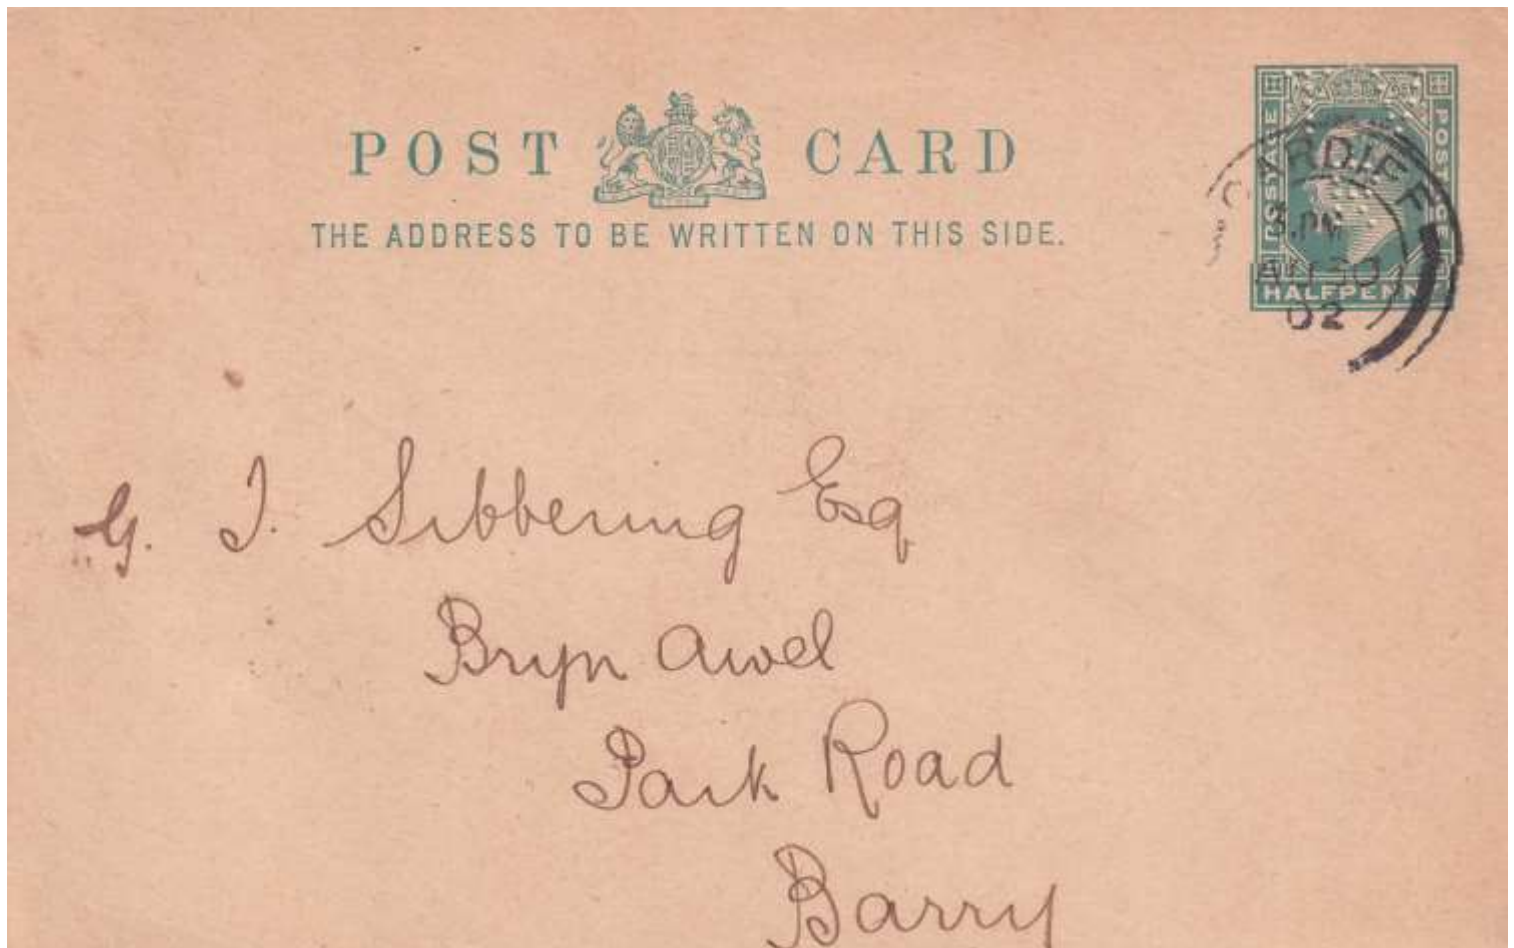 POST CARD
THE ADDRESS TO BE WRITTEN ON THIS SIDE.
POSTAGE
POSTAGE
HALFPENNY
CARDIFF
PM
AU 30
02
G. T. Sibbering Esq
Bryn Awel
Park Road
Barry